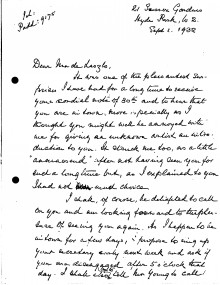 21 Sussex Gardens
Hyde Park, W.2.
Sept. 1. 1932
Dear Mr. de Laszlo,
It was one of the pleasantest sur-
prises I have had for a long time to receive
your cordial note of 30th and to hear that
you are in town. more especially as I
thought you might well be annoyed with
me for giving an unknown artist an intro-
duction to you. It struck me too, as a little
after not having seen you for
such a long time but, as I explained to you
I had not much choice
I shall, of course, be delighted to call
on you and am looking forward to the plea-
sure of seeing you again. As I happen to be
in town for a few days, I propose to ring up
your secretary early next week and ask if
you are disengaged after 5 o'clock that
day. I shall also tell Mr Young to call